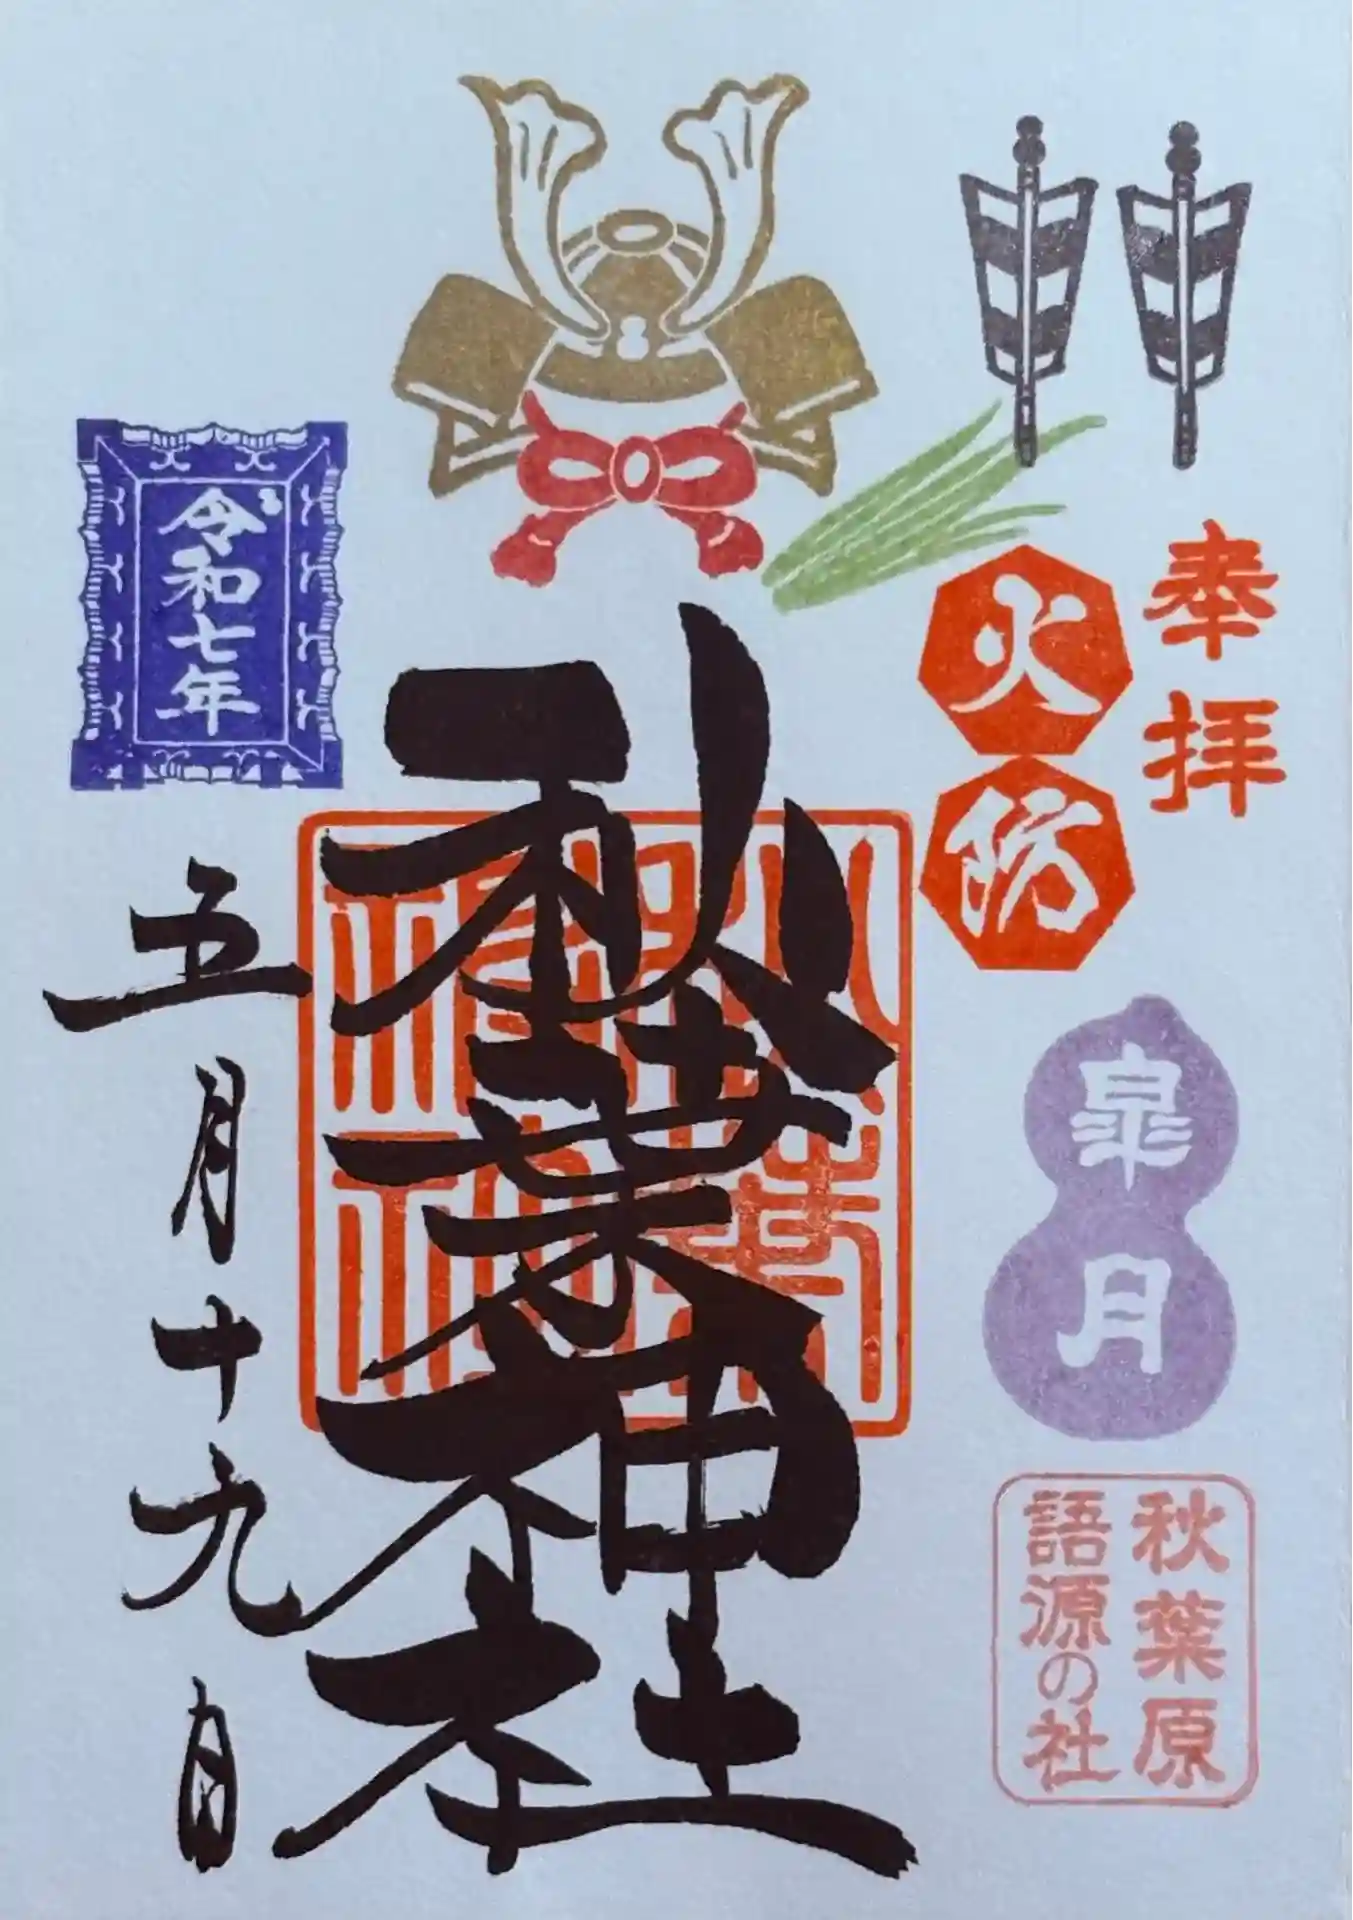 奉拝
火防
皐月
秋葉原
語源の社
秋葉神社
令和七年
五月十九日